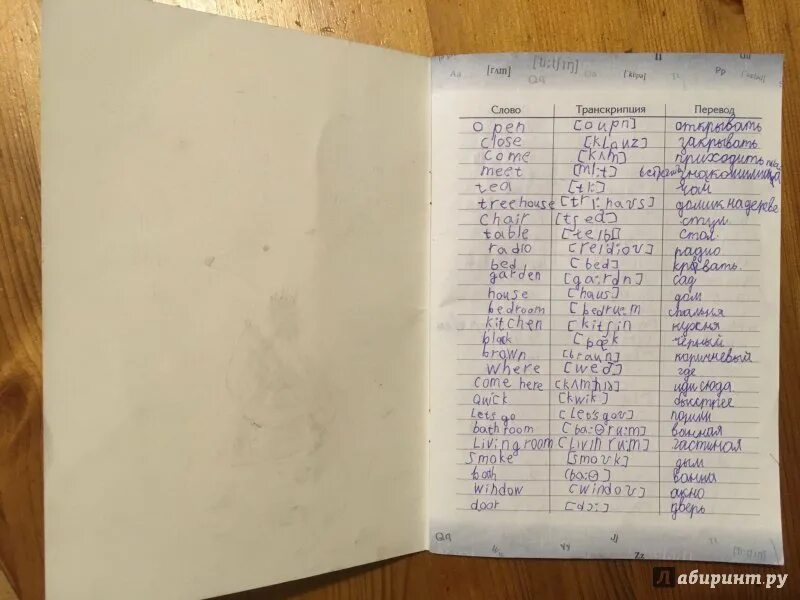 [rʌm] Qq Pp
Слово Транскрипция Перевод
open [oupn] открывать
close [klouz] закрывать
come [kʌm] приходить
meet [mi:t] знакомиться
tea [ti:] чай
treehouse [tri:haus] домик на дереве
chair [tʃeə] стул
table [teibl] стол
radio [reidiou] радио
bed [bed] кровать.
garden [ga:rdn] сад
house [haus] дом
bedroom [bedru:m] спальня
kitchen [kitʃin] кухня
black чёрный
brown [braun] коричневый
where [weə] где
come here иди сюда
Quick [kwik] быстрее
Lets go [letsgou] пошли
bathroom [ba:Θru:m] ванная
Livingroom гастиная
Smoke [smouk] дым
bath [ba:Θ] ванна
window [windou] акно
door [dɔ:] дверь
Qq Yy Jj Zz
Лабиринт.ру